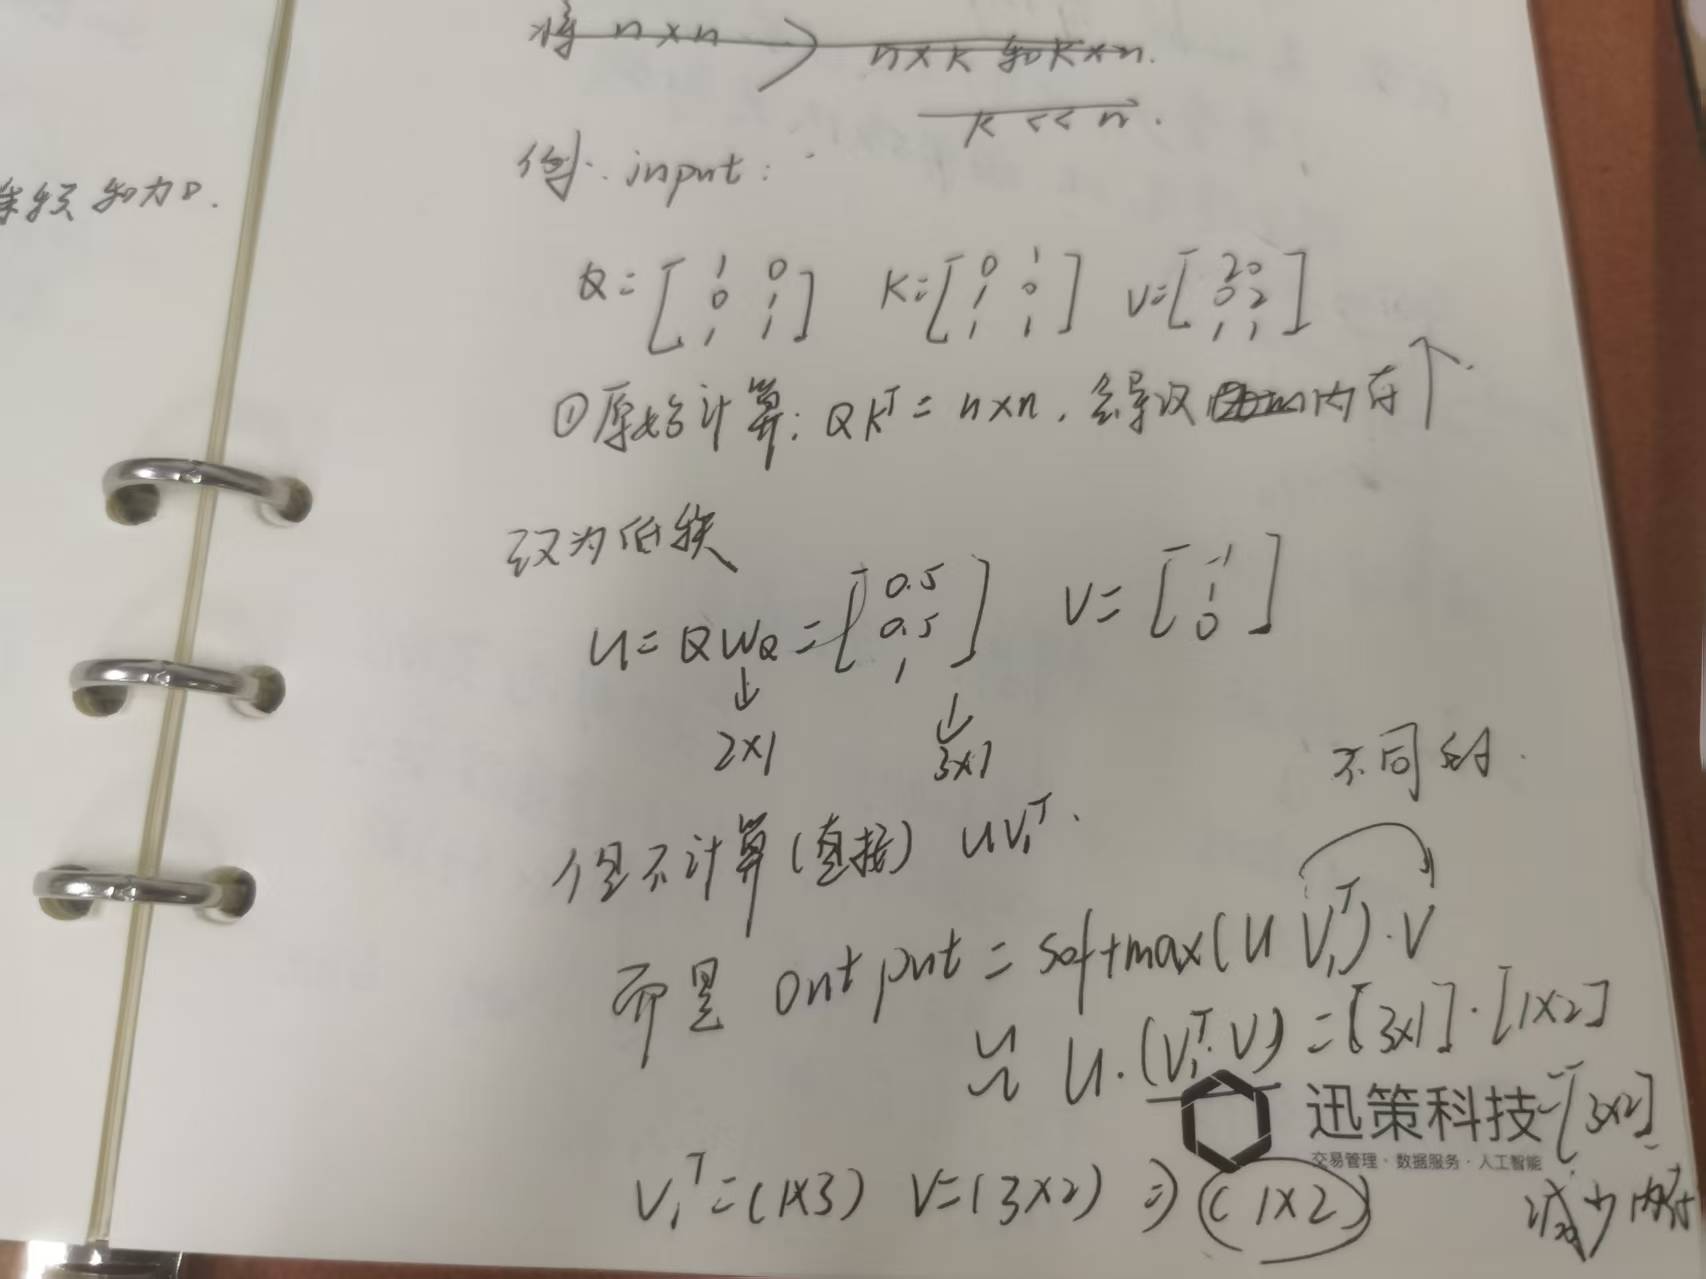 将 n×n → n×k 和 k×n.
k << n.
例. input:
Q = [1 0; 0 1; 1 1] K = [0 1; 1 0; 1 1] V = [2 0; 0 2; 1 1]
①原始计算: QKᵀ = n×n, 会导致 内存↑.
改为低秩
U = QW_Q = [0.5; 0.5; 1] V = [-1; 1; 0]
↓ ↓
2×1 3×1
不同的.
但不计算(直接) UV₁ᵀ.
而是 output = softmax(U V₁ᵀ)·V
≈ U·(V₁ᵀ·V) = [3×1]·[1×2]
= [3×2]
V₁ᵀ=(1×3) V=(3×2) ⇒ (1×2)
减少内存
迅策科技
交易管理·数据服务·人工智能